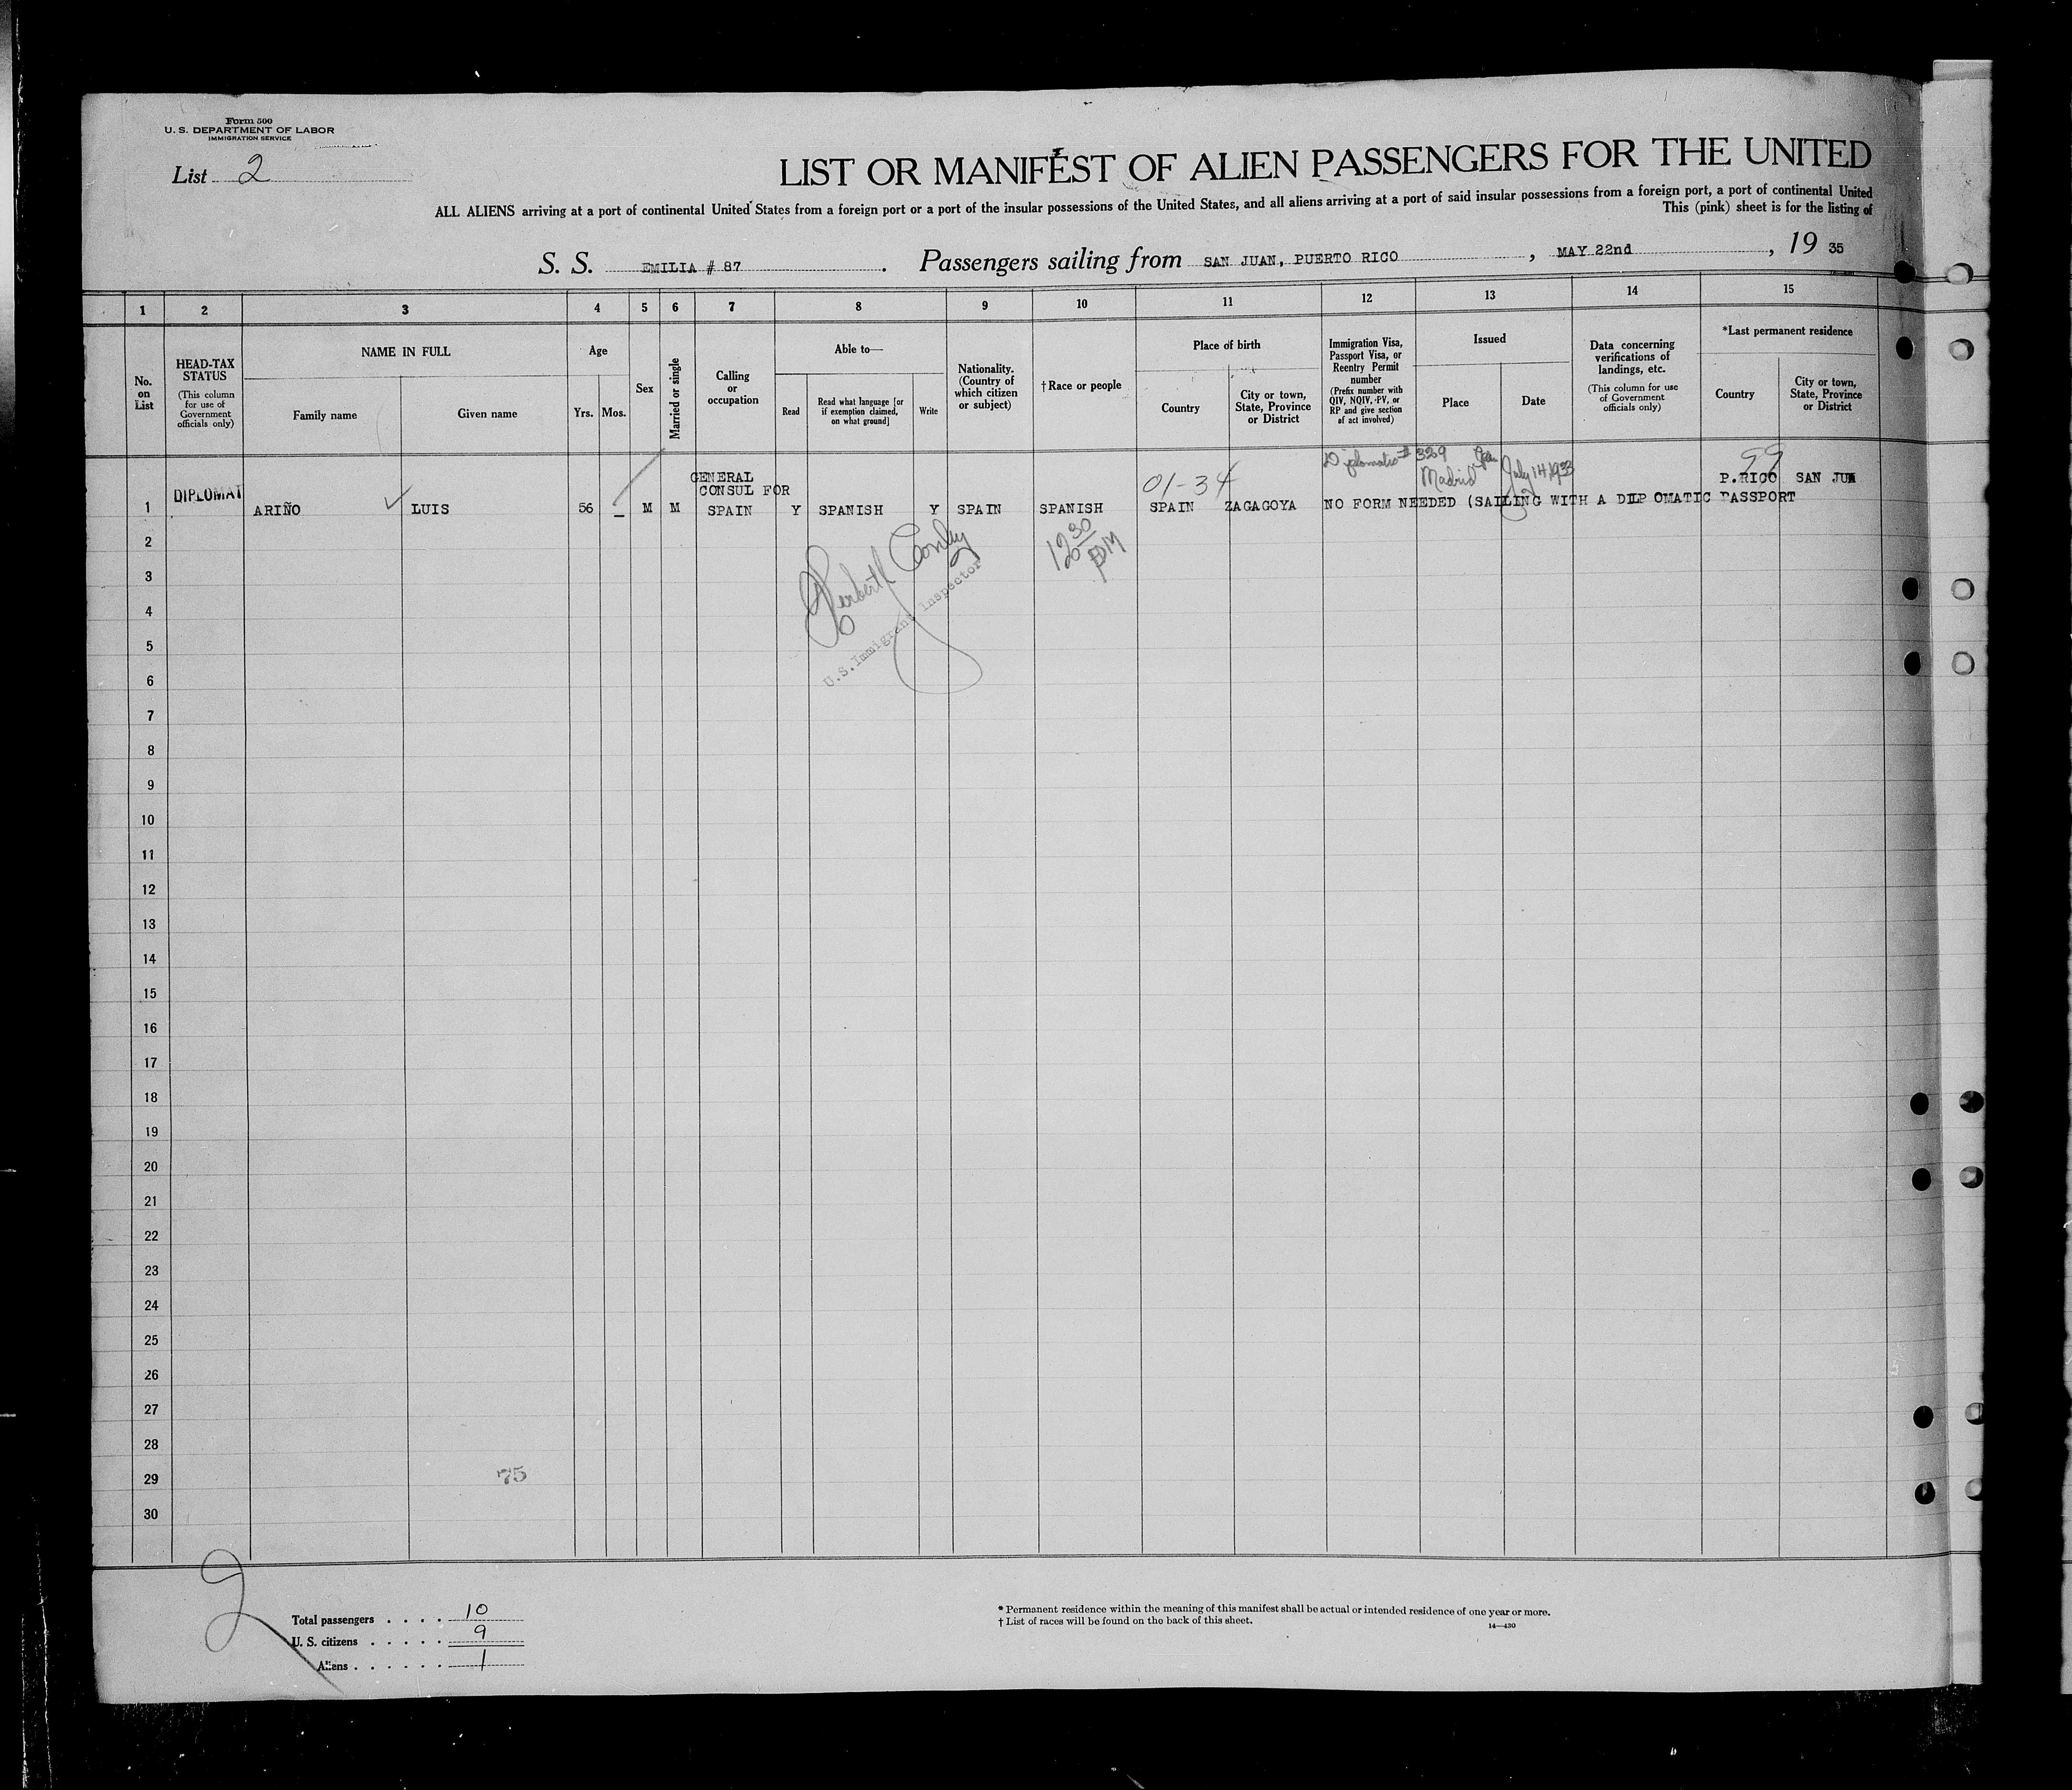 Form 500
U. S. DEPARTMENT OF LABOR
IMMIGRATION SERVICE
List 2
LIST OR MANIFEST OF ALIEN PASSENGERS FOR THE UNITED
ALL ALIENS arriving at a port of continental United States from a foreign port or a port of the insular possessions of the United States, and all aliens arriving at a port of said insular possessions from a foreign port, a port of continental United
This (pink) sheet is for the listing of
S. S. EMILIA # 87 . Passengers sailing from SAN JUAN, PUERTO RICO , MAY 22nd , 19 35
1 2 3 4 5 6 7 8 9 10 11 12 13 14 15
No. on List
HEAD-TAX STATUS
(This column for use of Government officials only)
NAME IN FULL
Family name
Given name
Age
Yrs.
Mos.
Sex
Married or single
Calling or occupation
Able to—
Read
Read what language [or if exemption claimed, on what ground]
Write
Nationality. (Country of which citizen or subject)
†Race or people
Place of birth
Country
City or town, State, Province or District
Immigration Visa, Passport Visa, or Reentry Permit number
(Prefix number with QIV, NQIV, PV, or RP and give section of act involved)
Issued
Place
Date
Data concerning verifications of landings, etc.
(This column for use of Government officials only)
*Last permanent residence
Country
City or town, State, Province or District
Diplomatic # 3269 Madrid July 14, 1933
01-34
99
1 DIPLOMAT ARIÑO LUIS 56 — M M GENERAL CONSUL FOR SPAIN Y SPANISH Y SPAIN SPANISH SPAIN ZAGAGOYA NO FORM NEEDED (SAILING WITH A DILP OMATIC PASSPORT P.RICO SAN JUN
12 30 PM
Herbert Conley
U.S. Immigrant Inspector
2
3
4
5
6
7
8
9
10
11
12
13
14
15
16
17
18
19
20
21
22
23
24
25
26
27
28
29
75
30
2
Total passengers . . . . 10
U. S. citizens . . . . . 9
Aliens . . . . . . 1
* Permanent residence within the meaning of this manifest shall be actual or intended residence of one year or more.
† List of races will be found on the back of this sheet.
14—430